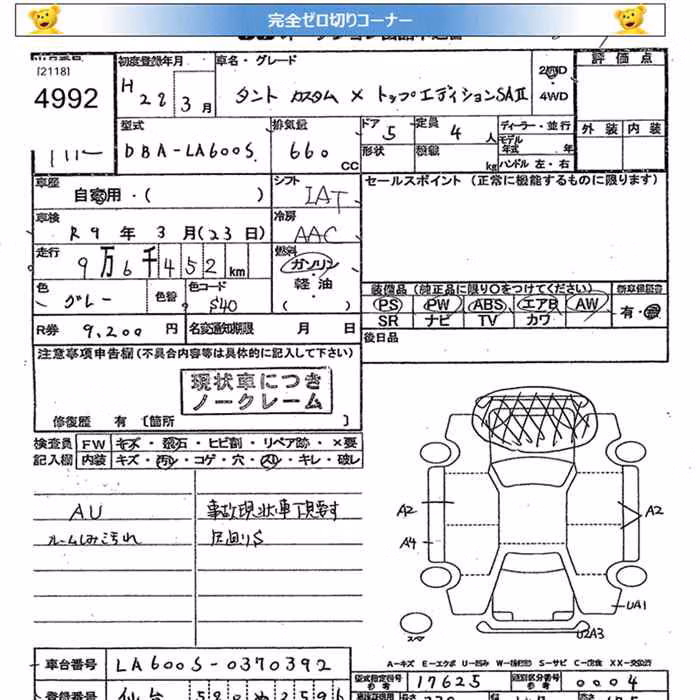 完全ゼロ切りコーナー
[2118]
4992
初度登録年月
H 28 3月
車名・グレード
タント カスタム X トップエディションSAⅡ
2WD
4WD
評価点
外装 内装
型式
DBA-LA600S
排気量
660 cc
ドア 5
定員 4 人
形状
積載 kg
ディーラー・並行
モデル年式 年
ハンドル 左・右
車歴
自家用・( )
シフト
IAT
セールスポイント (正常に機能するものに限ります)
車検
R9 年 3 月(23 日)
冷房
AAC
走行
9万6千452 km
燃料
ガソリン
軽油
( )
色
グレー
色替
色コード
S40
装備品 (純正品に限り○をつけてください)
PS PW ABS エアB AW
SR ナビ TV カワ
有・無
R券 9,200 円
名変通知期限 月 日
後日品
注意事項申告欄 (不具合内容等は具体的に記入して下さい)
現状車につき
ノークレーム
修復歴 有 [箇所 ]
検査員 FW キズ・飛石・ヒビ割・リペア跡・×要
記入欄 内装 キズ・汚れ・コゲ・穴・スレ・キレ・破レ
AU
ルームしみ汚れ
事故現状車下見要す
足回りS
A2 A2
A4
UA1
U2A3
スマ
A-キズ E-エクボ U-凹み W-(補修) S-サビ C-腐食 XX-交換済
車台番号 LA600S-0370392
型式指定番号 参考 17625
類別区分番号 参考 0004
登録番号 仙台 580 ぬ 2596